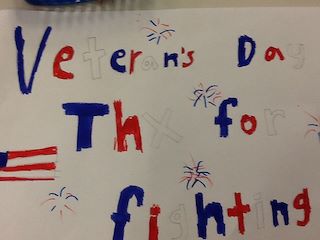 Veteran's Day
Thx for
fighting